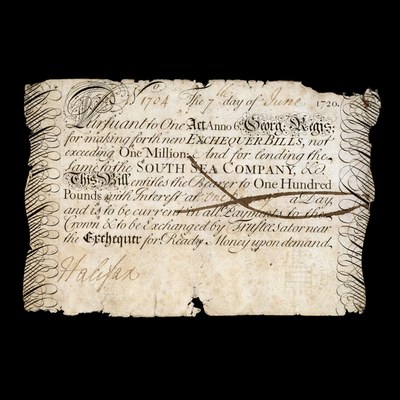 No 1704 The 7th day of June 1720.
Pursuant to One Act Anno 6 Georg: Regis:
for making forth new EXCHEQUER BILLS, not
exceeding One Million; And for lending the
same to the SOUTH SEA COMPANY, &c.
This Bill entitles the Bearer to One Hundred
Pounds with Interest at a Day,
and is to be current in all Payments to the
Crown & to be Exchanged by Trustees at or near
the Exchequer for Ready Money upon demand.
Halifax